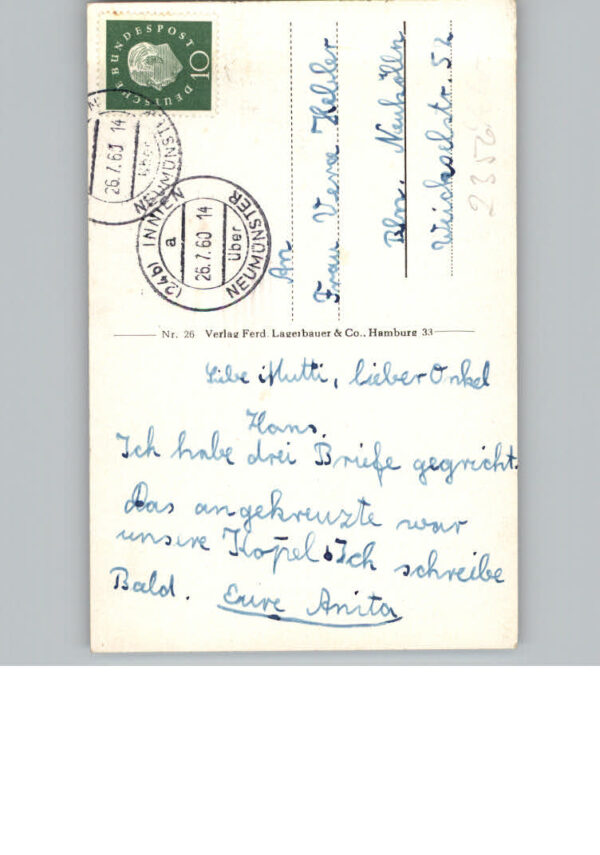 DEUTSCHE BUNDESPOST
10
(24b) INNIEN
a
26.7.60 14
über
NEUMÜNSTER
26.7.60 14
über
NEUMÜNSTER
An
Frau Vera Kebler
Bln. Neukölln
Weichselstr. 52
2356
Nr. 26 Verlag Ferd. Lagerbauer & Co., Hamburg 33
Libe Mutti, lieber Onkel
Hans.
Ich habe drei Briefe gegricht.
Das angekreuzte war
unsere Kopel. Ich schreibe
Bald. Eure Anita